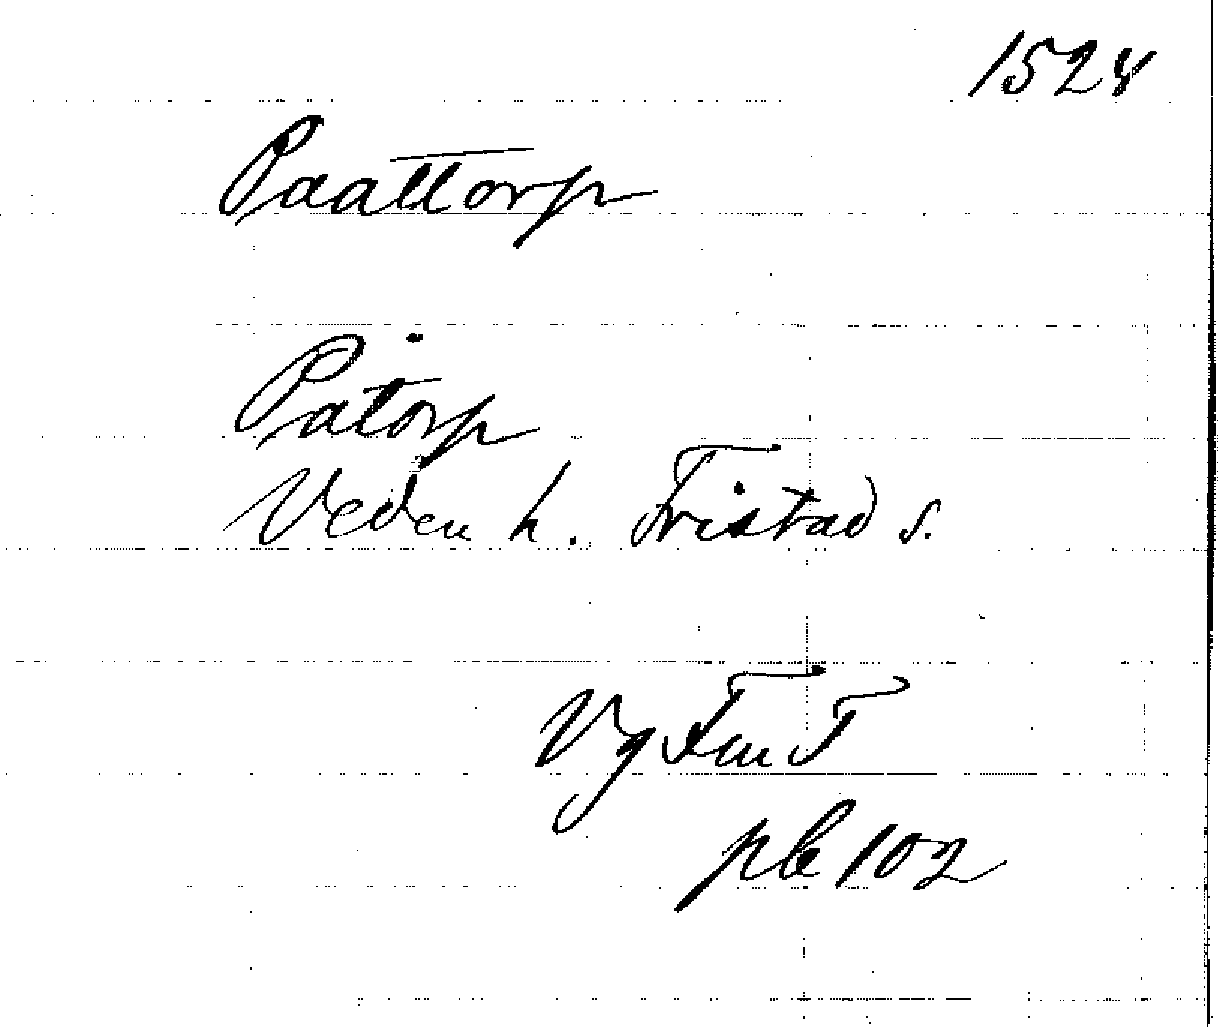 1528
Paattorp
Påtorp
Veden h. Fristad s.
Vg Fru T
pb 102